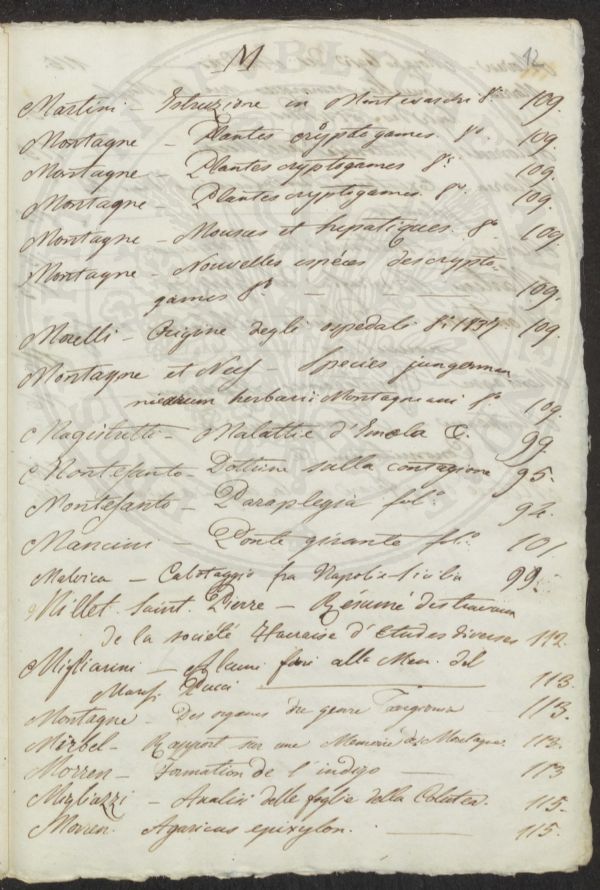 M 12
Martini – Istruzione in Montevaschi 8º 109.
Montagne – Plantes cryptogames. 8º 109.
Montagne – Plantes cryptogames 8º 109.
Montagne – Plantes cryptogames. 8º 109.
Montagne – Mousses et hepatiques. 8º 109
Montagne – Nouvelles espéces des crypto-
games 8º – – 109.
Morelli – Origine degli ospedali 8º 1837 109.
Montagne et Nees – Species jungerman
niarum herbarii Montagneani 8º 109.
Magistretti – Malattie d'Imola 99.
Montesanto – Dottrine sulla contagione 95.
Montesanto – Paraplegia folº 94.
Mancini – Ponte girante folº 101
Malvica – Cabotaggio fra Napoli e Sicilia 99.
Millet Saint Pierre – Résumé des travaux
de la société Havraise d'études diverses 112
Migliarini – Alcuni fiori alla Mem. del
March. Pucci 113.
Montagne – Des organes du genre Targionia – 113.
Mirbel – Rapport sur une Memoire de Montagne. 113.
Morren – Formation de l'indigo – 113
Migliazzi – Analisi delle foglie della Colutea. 115.
Morren. Agaricus epixylon. – 115.